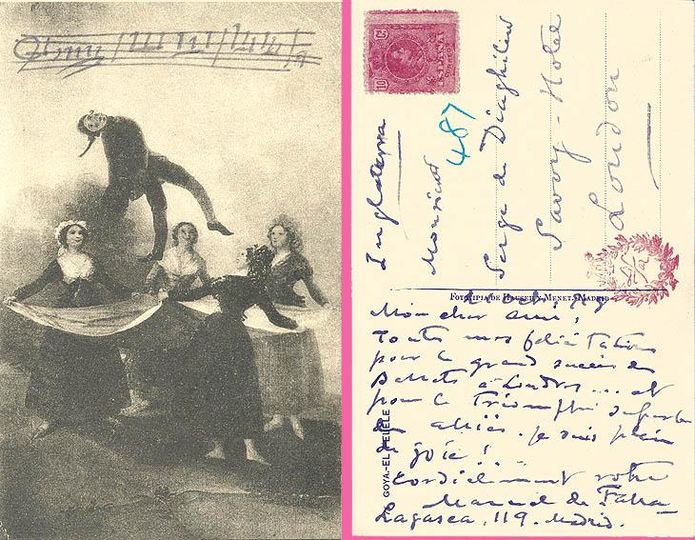 10 Cs
ESPAÑA
487
Inglaterra
Monsieur
Serge de Diaghilew
Savoy-Hotel
London
FOTOTIPIA DE HAUSER Y MENET.-MADRID
GOYA.-EL PELELE
Mon cher ami,
Toutes mes félicitations
pour le grand succès des
Ballets à Londres... et
pour le Triomphe superbe
des alliés. Je suis plein
de joie!...
Cordialement votre
Manuel de Falla
Lagasca, 119. Madrid.